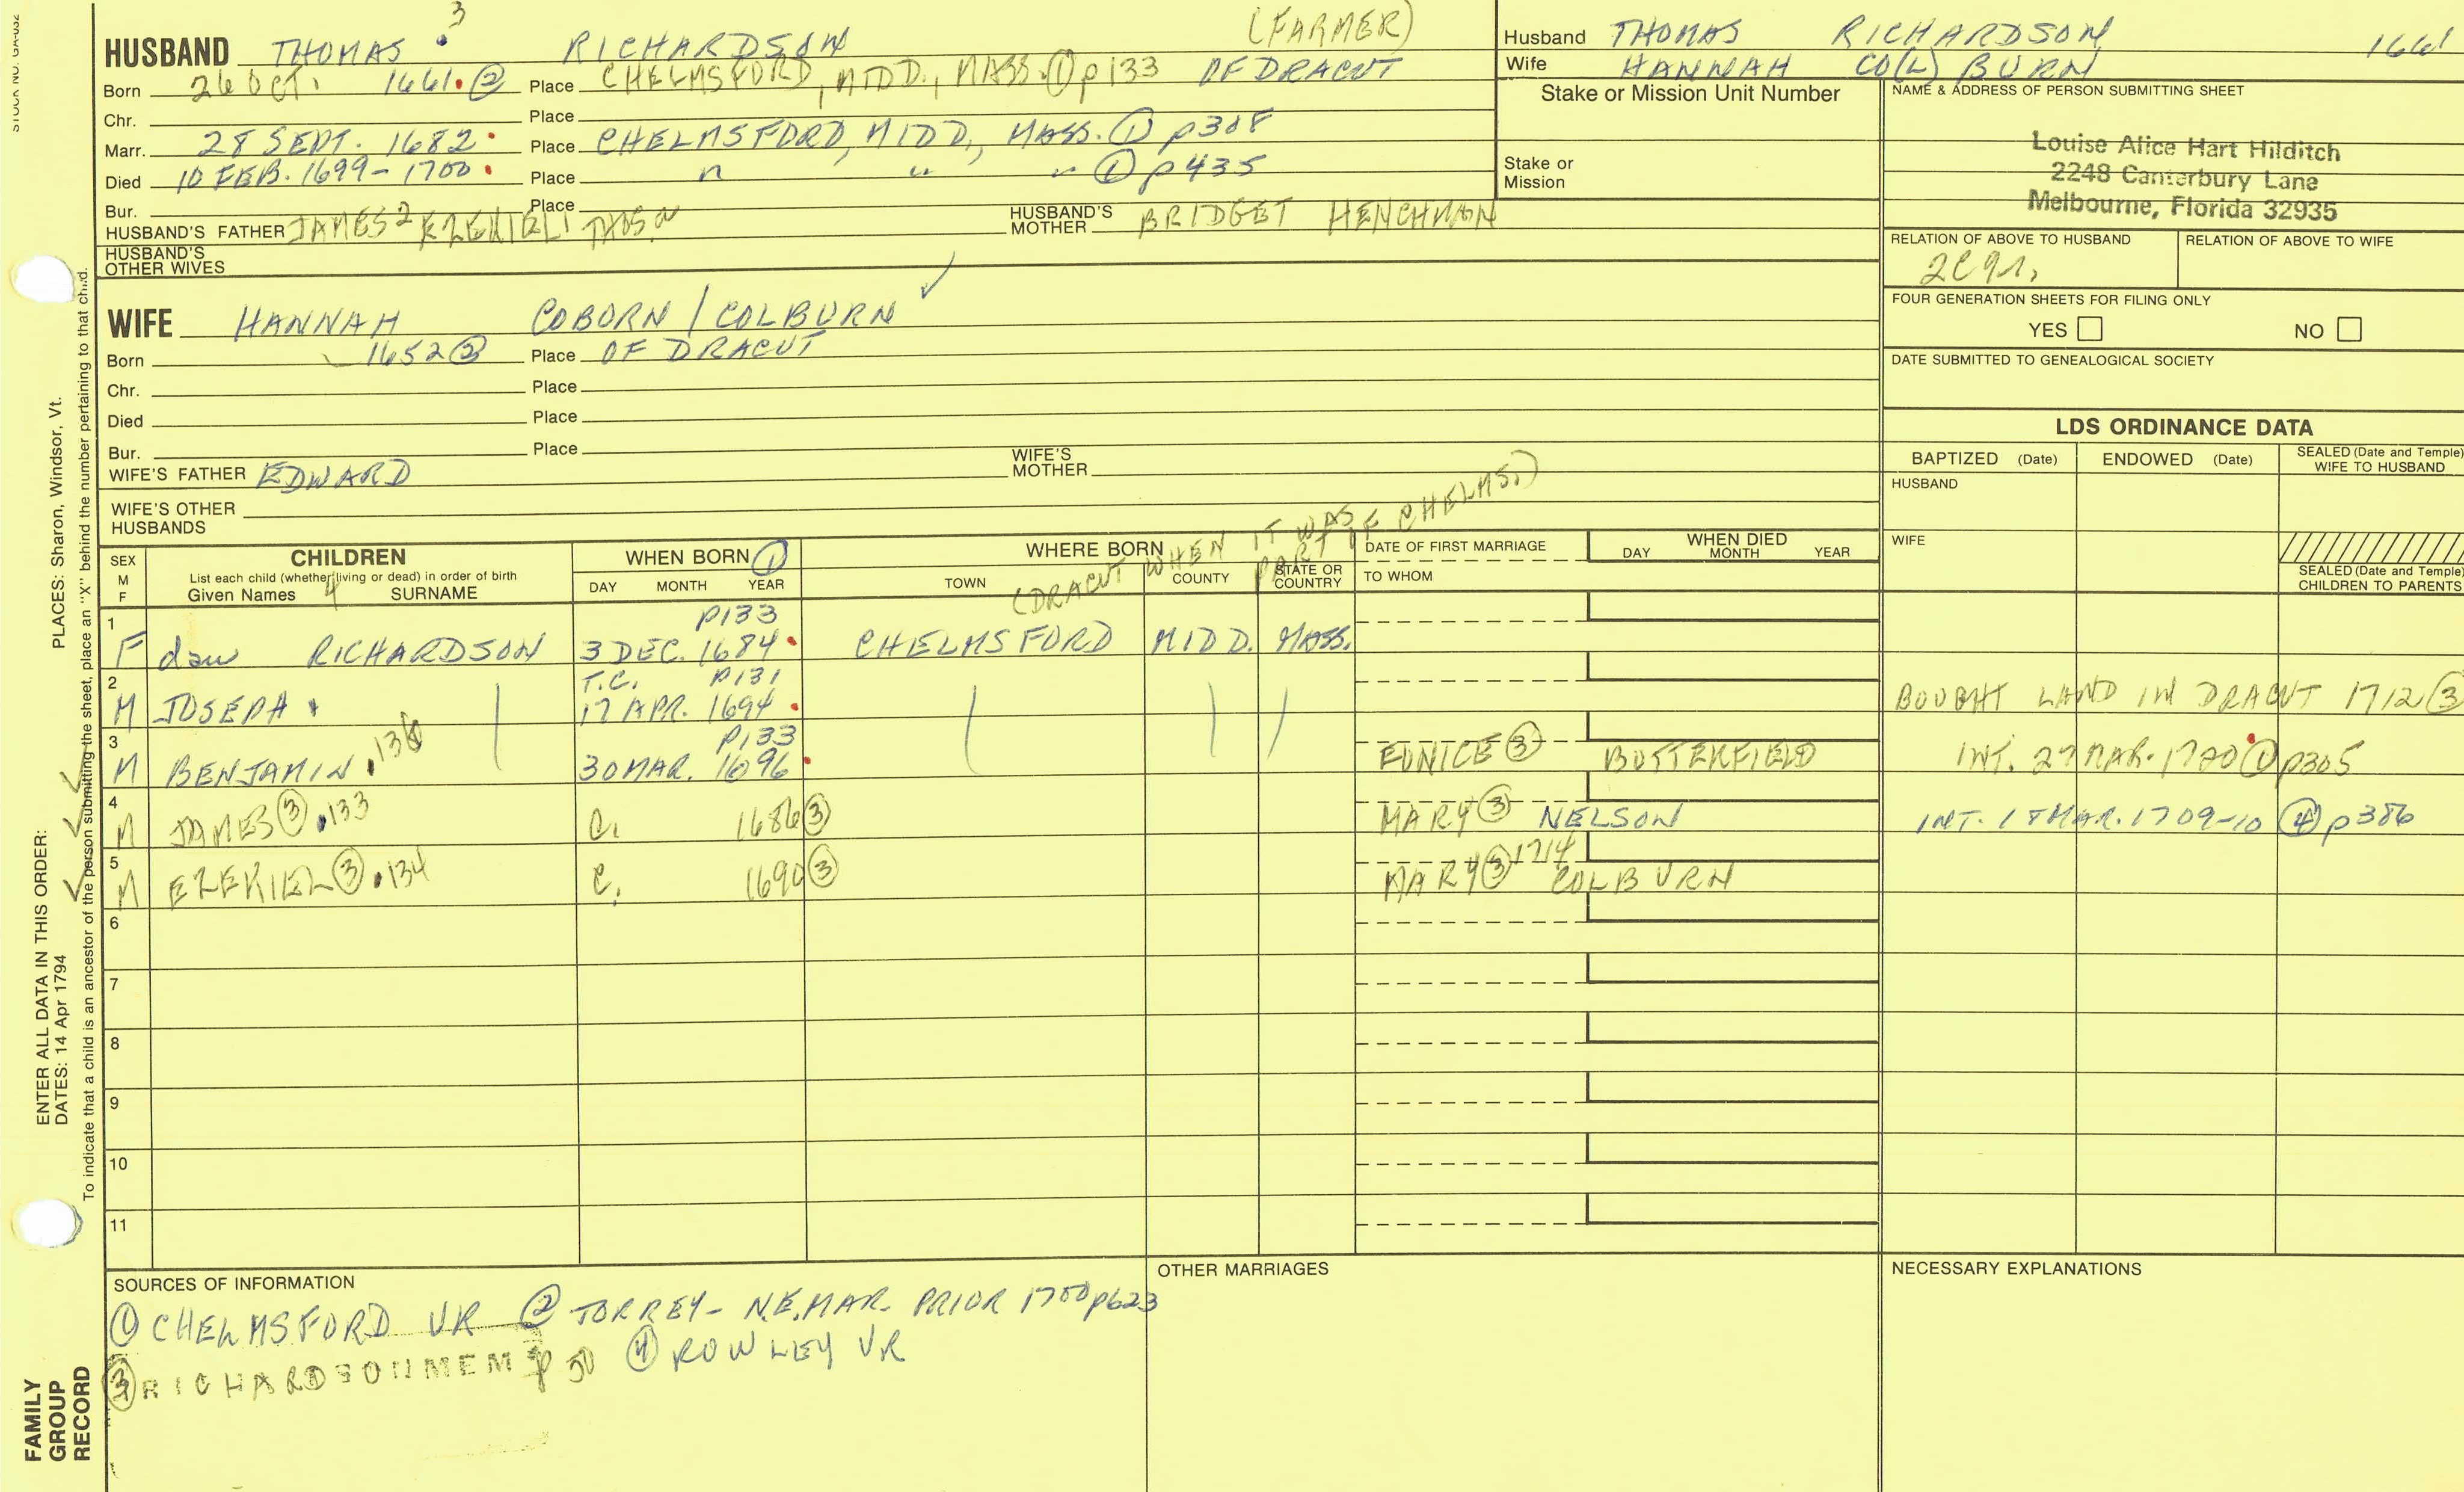 STOCK NO. GA-032
3
HUSBAND THOMAS RICHARDSON (FARMER)
Born 26 OCT. 1661 ② Place CHELMSFORD, MIDD., MASS. ① p133 OF DRACUT
Chr. Place
Marr. 28 SEPT. 1682 Place CHELMSFORD, MIDD., MASS. ① p308
Died 10 FEB. 1699-1700 Place " " " ① p435
Bur. Place
HUSBAND'S FATHER JAMES 2 EZEKIEL 1 THOS. HUSBAND'S MOTHER BRIDGET HENCHMAN
HUSBAND'S OTHER WIVES
WIFE HANNAH COBORN / COLBURN
Born 1652 ② Place OF DRACUT
Chr. Place
Died Place
Bur. Place
WIFE'S FATHER EDWARD WIFE'S MOTHER
WIFE'S OTHER HUSBANDS
Husband THOMAS RICHARDSON 1661
Wife HANNAH CO(L)BURN
Stake or Mission Unit Number
Stake or Mission
NAME & ADDRESS OF PERSON SUBMITTING SHEET
Louise Alice Hart Hilditch
2248 Canterbury Lane
Melbourne, Florida 32935
RELATION OF ABOVE TO HUSBAND RELATION OF ABOVE TO WIFE
FOUR GENERATION SHEETS FOR FILING ONLY
YES NO
DATE SUBMITTED TO GENEALOGICAL SOCIETY
LDS ORDINANCE DATA
BAPTIZED (Date) ENDOWED (Date) SEALED (Date and Temple) WIFE TO HUSBAND
HUSBAND
WIFE
SEALED (Date and Temple) CHILDREN TO PARENTS
SEX M F
CHILDREN
List each child (whether living or dead) in order of birth
Given Names 4 SURNAME
WHEN BORN ①
DAY MONTH YEAR
WHERE BORN
TOWN COUNTY STATE OR COUNTRY
(DRACUT WHEN IT WAS PART OF CHELMS.)
DATE OF FIRST MARRIAGE
TO WHOM
WHEN DIED
DAY MONTH YEAR
1 p133
F dau RICHARDSON 3 DEC. 1684 CHELMSFORD MIDD. MASS.
2 T.C. p131
M JOSEPH 17 APR. 1694 BOUGHT LAND IN DRACUT 1712 ③
3 p133
M BENJAMIN 30 MAR. 1696 EUNICE ③ BUTTERFIELD INT. 27 MAR. 1720 ① p305
4
M JAMES ③ 133 C. 1686 ③ MARY ③ NELSON INT. 18 MAR. 1709-10 ④ p386
5 1714
M EZEKIEL ③ 134 C. 1690 ③ MARY ③ COLBURN
6
7
8
9
10
11
SOURCES OF INFORMATION
① CHELMSFORD VR ② TORREY - N.E. MAR. PRIOR 1700 p623
③ RICHARDSON MEM p 50 ④ ROWLEY VR
OTHER MARRIAGES
NECESSARY EXPLANATIONS
PLACES: Sharon, Windsor, Vt.
To indicate that a child is an ancestor of the person submitting the sheet, place an "X" behind the number pertaining to that child.
ENTER ALL DATA IN THIS ORDER:
DATES: 14 Apr 1794
FAMILY
GROUP
RECORD